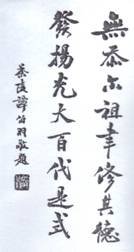 無忝尔祖聿修其德
發揚光大百代是式
茶陵譚伯羽敬題